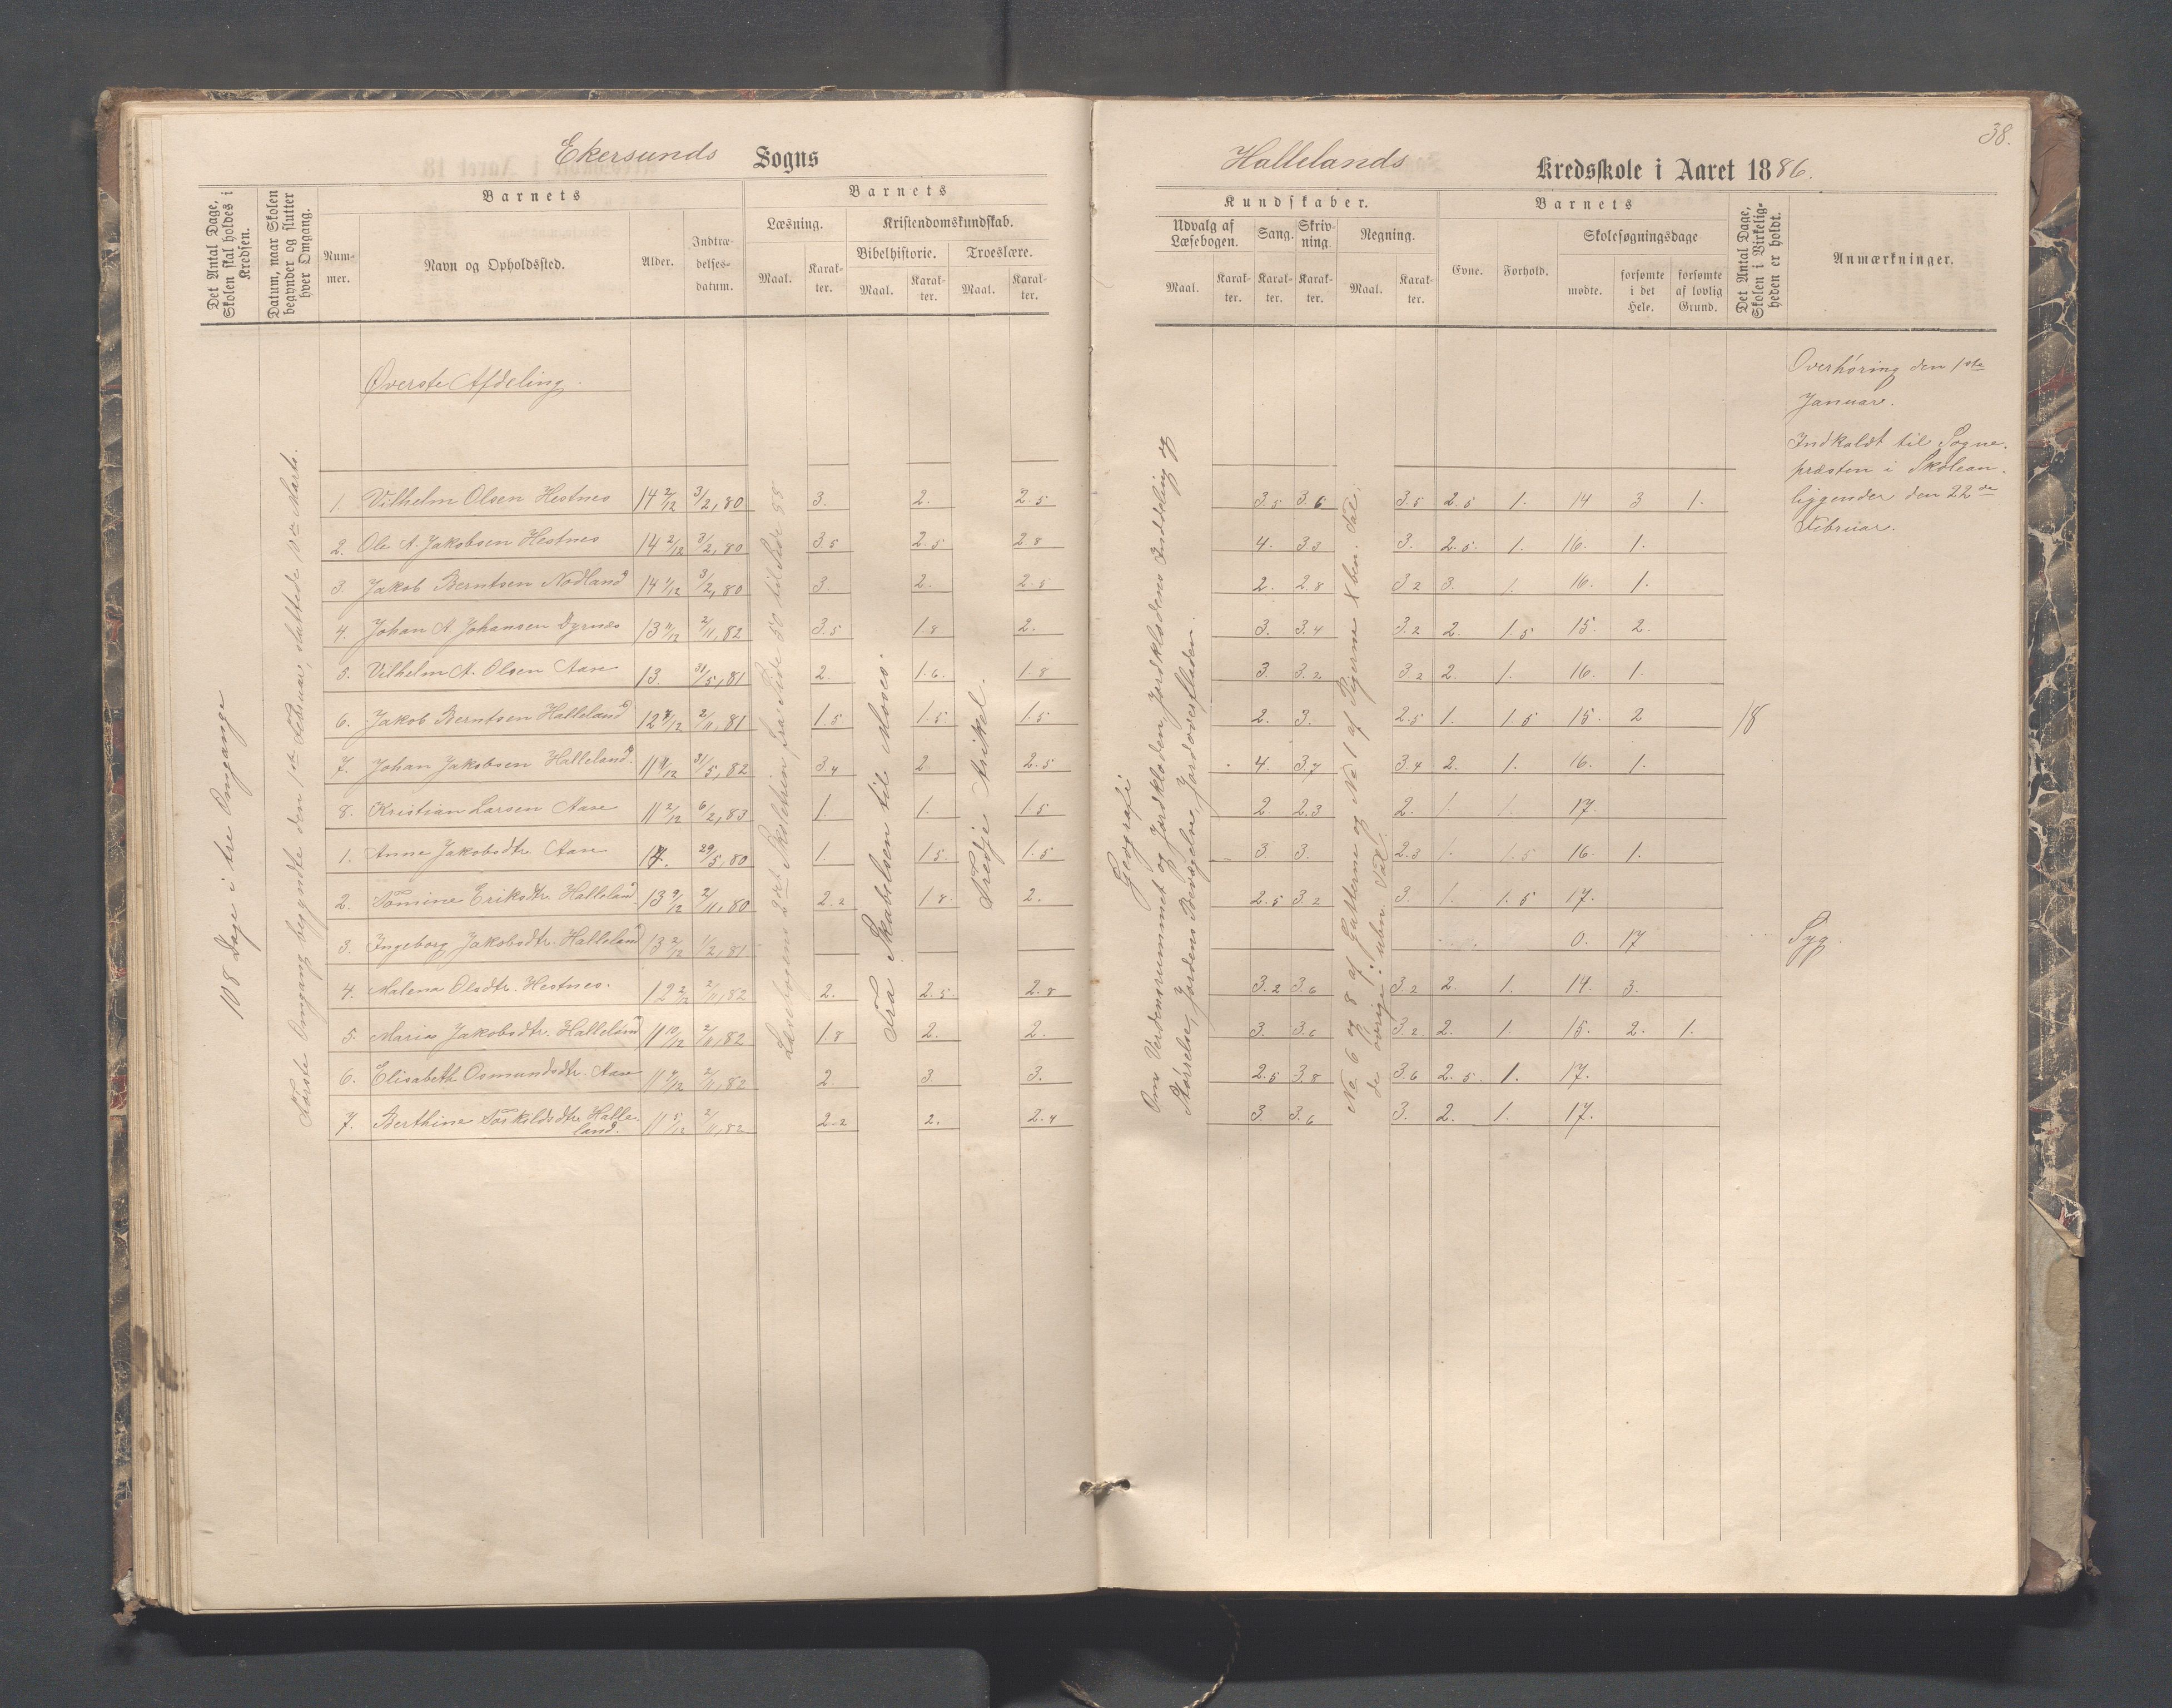 38.
Ekersunds Sogns
Hallelands Kredsskole i Aaret 1886.
Det Antal Dage, Skolen skal holdes i Kredsen.
Datum, naar Skolen begynder og slutter hver Omgang.
Barnets
Nummer.
Navn og Opholdssted.
Alder.
Indtrædelsesdatum.
Barnets
Læsning.
Maal.
Karakter.
Kristendomskundskab.
Bibelhistorie.
Maal.
Karakter.
Troeslære.
Maal.
Karakter.
Kundskaber.
Udvalg af Læsebogen.
Maal.
Karakter.
Sang.
Karakter.
Skrivning.
Karakter.
Regning.
Maal.
Karakter.
Barnets
Evne.
Forhold.
Skolesøgningsdage
mødte.
forsømte i det Hele.
forsømte af lovlig Grund.
Det Antal Dage, Skolen i Virkeligheden er holdt.
Anmærkninger.
108 Dage i tre Omgange
Første Omgang begyndte den 1ste Februar, sluttede Marts.
Øverste Afdeling.
Læsebogens 2det Skoletrin, fra Side 50 til Side 58
Fra Skabelsen til Moses.
Tredje Artikel.
Geografi
Om Verdensrummet og Jordkloden, Jordklodens Inddeling og
Størrelse, Jordens Bevægelse, Jordoverfladen.
No. 6 og 8 af Gatterne og No 1 af Pigerne Kben. Tal;
de øvrige: ubn. Tal.
1. Vilhelm Olsen Hestnes 14 2/12 3/2, 80 3. 2. 2.5 3.5 3.6 3.5 2.5 1. 14 3 1.
2. Ole A. Jakobsen Hestnes 14 2/12 3/2, 80 3.5 2.5 2.8 4. 3.3 3. 2.5. 1. 16. 1.
3. Jakob Berntsen Nodland 14 1/12 3/2, 80 3. 2. 2.5 2. 2.8 3.2 3. 1. 16. 1.
4. Johan A Johansen Dyrnæs 13 11/12 2/11, 82 3.5 1.8 2. 3. 3.4 3.2 2. 1.5 15. 2.
5. Vilhelm A. Olsen Aase 13. 31/5, 81 2. 1.6. 1.8 3 3.2 3.2 2. 1. 16. 1.
6. Jakob Berntsen Halleland 12 /12 2/11, 81 1.5 1.5 1.5 2. 3. 2.5 1. 1.5 15. 2 18
7. Johan Jakobsen Halleland. 11 /12 31/5, 82 3.4 2 2.5 4. 3.7 3.4 2. 1. 16. 1.
8. Kristian Larsen Aase 11 2/12 6/2, 83 1. 1. 1.5 2 2.3 2. 1. 1. 17.
1. Anna Jakobsdtr. Aase 14. 29/5, 80 1. 1.5. 1.5 3. 3. 2.3 1. 1.5 16. 1.
2. Tomine Eriksdtr. Halleland 13 9/12 2/11, 80 2.2 1.8. 2. 2.5 3.2 3. 1. 1.5 17.
3. Ingeborg Jakobsdtr. Halleland 13 2/12 1/2, 81. 0. 17 Syg.
4. Malena Olsdtr. Hestnes. 12 2/12 2/11, 82 2. 2.5. 2.8 3.2 3.6 3.2 2. 1. 14. 3.
5. Maria Jakobsdtr. Halleland 11 10/12 2/11, 82 1.8 2. 2. 3. 3.6 3.2 2. 1. 15. 2. 1.
6. Elisabeth Osmundsdtr. Aase 11 /12 2/11, 82 2. 3. 3. 2.5 3.8 3.6 2.5. 1. 17.
7. Berthine Torkildsdtr. Halleland. 11 5/12 2/11, 82 2.2 2. 2.4 3. 3.6 3. 2. 1. 17.
Overhøring den 1ste
Januar.
Indkaldt til Sogne-
præsten i Skolean-
liggender den 22de
Februar.